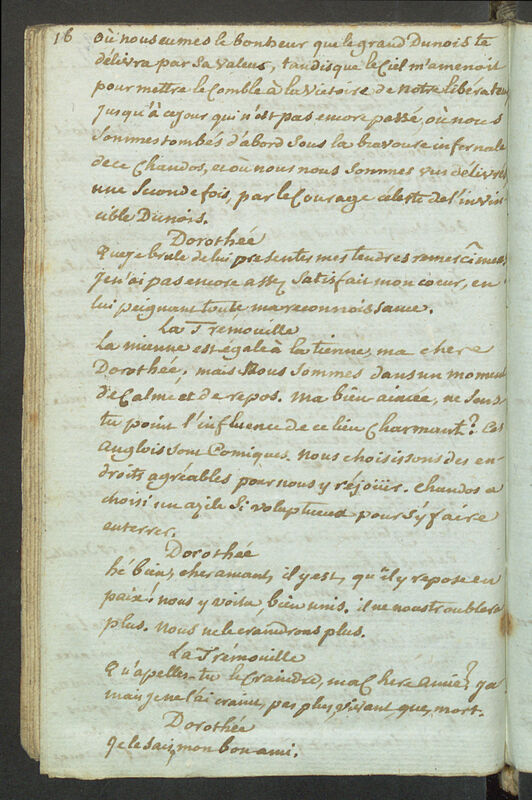 16
où nous eumes le bonheur que le grand Dunois te
délivra par sa valeur, tandisque le Ciel m'amenoit
pour mettre le Comble à la Victoire de notre libérateur
jusqu'à ce jour qui n'est pas encore passé, où nous
sommes tombés d'abord sous la bravoure infernale
de ce Chandos, et où nous nous sommes vus délivrés
une seconde fois, par le Courage céleste de l'invin
cible Dunois.
Dorothée
que je brule de lui presenter mes tendres remercîmens
je n'ai pas encore assez satisfait mon coeur, en
lui peignant toute ma reconnoissance.
La Trémouille
La mienne est égale à la tienne, ma chere
Dorothée, mais Nous sommes dans un moment
de Calme et de repos. ma bien aimée, ne sens
tu point l'influence de ce lieu Charmant? Ces
anglois sont Comiques. nous choisissons des en-
droits agréables pour nous y rejoüir. Chandos a
choisi un azile si voluptueux pour s'y faire
enterrer.
Dorothée
hé bien, cher amant, il y est, qu'il y repose en
paix! nous y voila, bien unis. il ne nous troublera
plus. Nous ne le craindrons plus.
La Trémouille
Qu'apelles-tu le Craindre, ma Chere amie? ja
mais je ne l'ai craint, pas plus, vivant que, mort.
Dorothée
je le sais, mon bon ami.